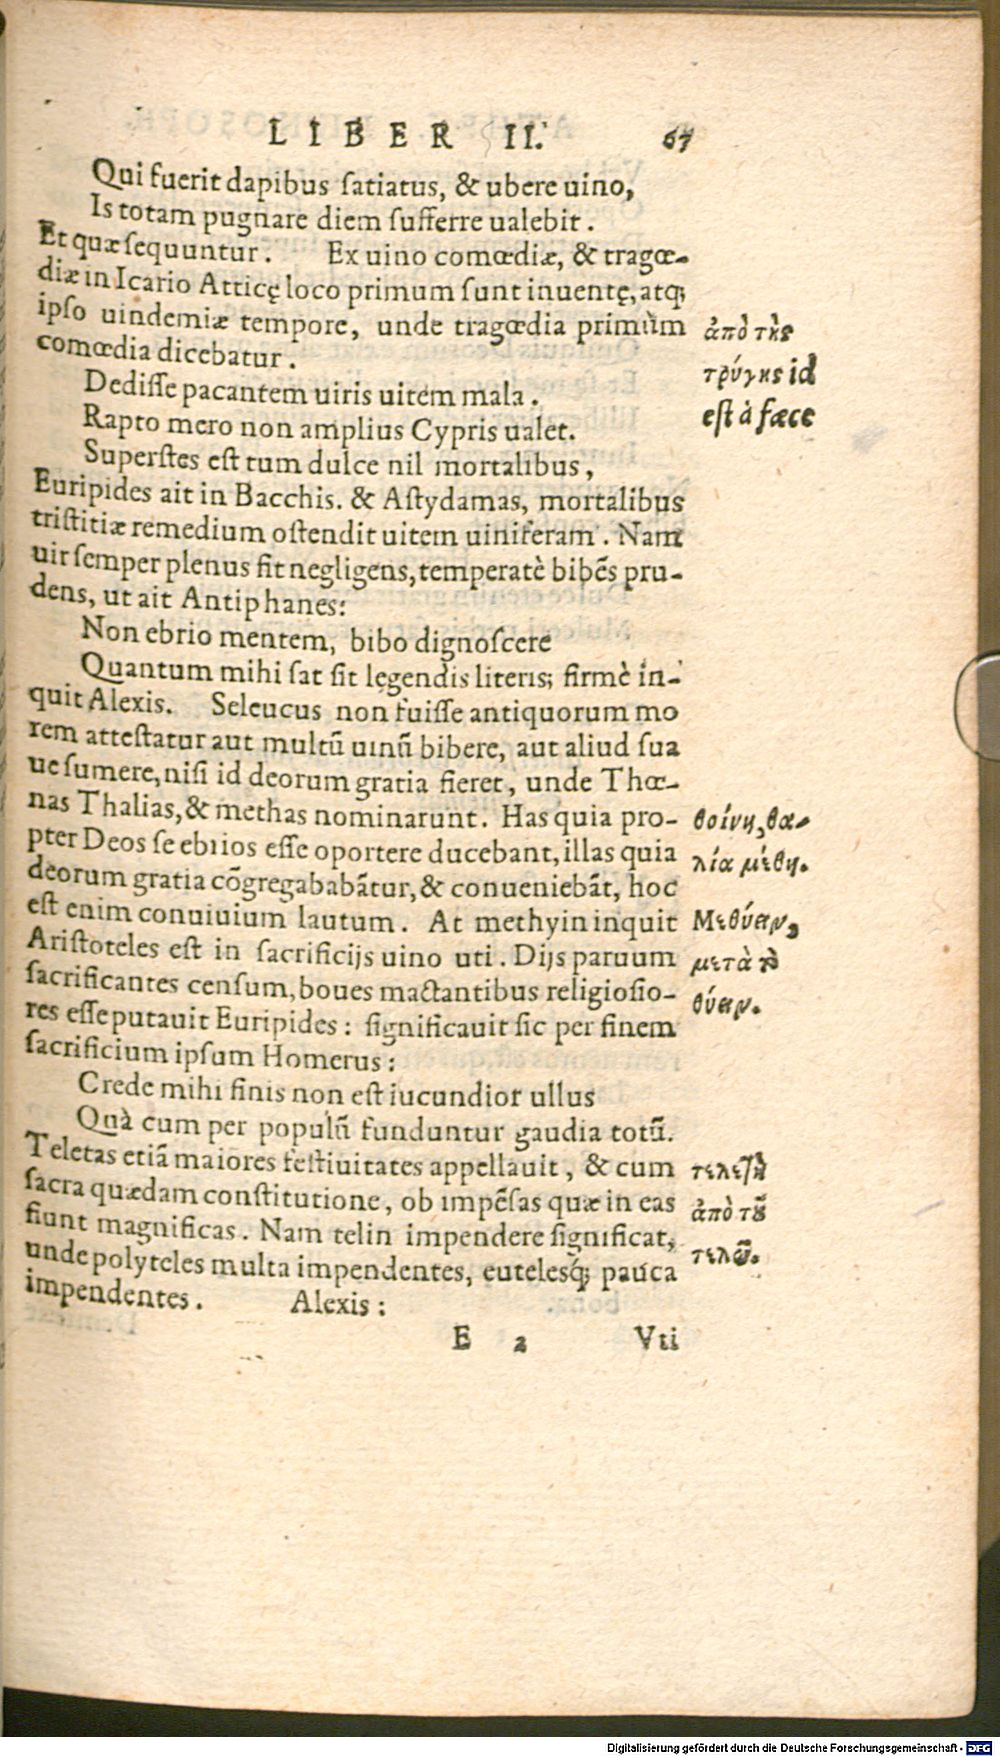 LIBER II. 67
Qui fuerit dapibus ſatiatus, & ubere uino,
Is totam pugnare diem ſufferre ualebit.
Et quæ ſequuntur. Ex uino comœdiæ, & tragœ-
diæ in Icario Atticę loco primum ſunt inuentę, atq;
ipſo uindemiæ tempore, unde tragœdia primùm
comœdia dicebatur.
Dediſſe pacantem uiris uitem mala.
Rapto mero non amplius Cypris ualet.
Superſtes eſt tum dulce nil mortalibus,
Euripides ait in Bacchis. & Aſtydamas, mortalibus
triſtitiæ remedium oſtendit uitem uiniferam. Nam
uir ſemper plenus fit negligens, temperatè bibẽs pru-
dens, ut ait Antiphanes:
Non ebrio mentem, bibo dignoſcere
Quantum mihi ſat ſit legendis literis; firmè in-
quit Alexis. Seleucus non fuiſſe antiquorum mo
rem atteſtatur aut multũ uinũ bibere, aut aliud ſua
ue ſumere, niſi id deorum gratia fieret, unde Thœ-
nas Thalias, & methas nominarunt. Has quia pro-
pter Deos ſe ebrios eſſe oportere ducebant, illas quia
deorum gratia cõgregababãtur, & conueniebãt, hoc
eſt enim conuiuium lautum. At methyin inquit
Ariſtoteles eſt in ſacrificijs uino uti. Dijs paruum
ſacrificantes cenſum, boues mactantibus religioſio-
res eſſe putauit Euripides: ſignificauit ſic per finem
ſacrificium ipſum Homerus:
Crede mihi finis non eſt iucundior ullus
Quà cum per populũ funduntur gaudia totũ.
Teletas etiã maiores feſtiuitates appellauit, & cum
ſacra quædam conſtitutione, ob impẽſas quæ in eas
fiunt magnificas. Nam telin impendere ſignificat,
unde polyteles multa impendentes, eutelesq́; pauca
impendentes. Alexis:
E 2 Vti
ἀπὸ τῆς
τρύγης id
eſt à fæce
θοίνη, θα-
λία μέθη.
Μεθύειν,
μετὰ τὸ
θύειν.
τελετὴ
ἀπὸ τοῦ
τελῶ.
Digitalisierung gefördert durch die Deutsche Forschungsgemeinschaft - DFG